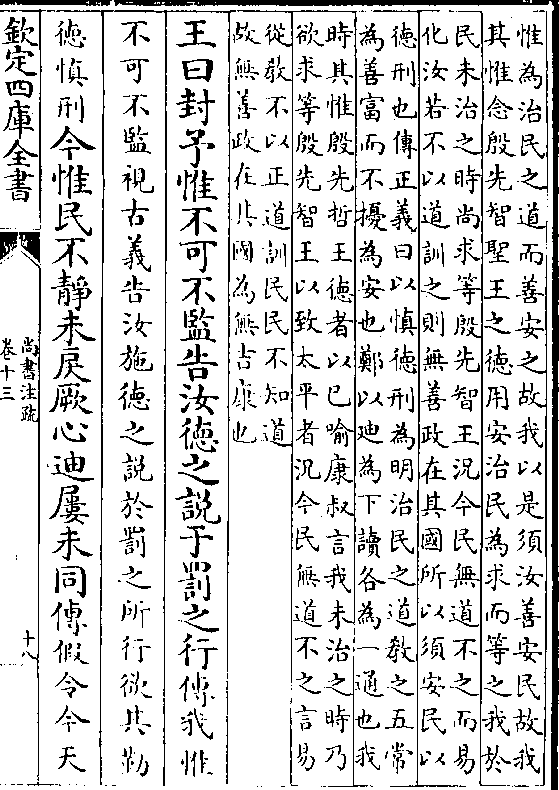 惟為治民之道而善安之故我以是須汝善安民故我
其惟念殷先智聖王之德用安治民為求而等之我於
民未治之時尚求等殷先智王況今民無道不之而易
化汝若不以道訓之則無善政在其國所以須安民以
德刑也傳正義曰以慎德刑為明治民之道教之五常
為善富而不擾為安也鄭以迪為下讀各為一通也我
時其惟殷先哲王德者以已喻康叔言我未治之時乃
欲求等殷先智王以致太平者況今民無道不之言易
從敎不以正道訓民民不知道
故無善政在其國為無吉康也
王曰封予惟不可不監告汝德之説于罰之行傳我惟
不可不監視古義告汝施德之說於罰之所行欲其勤
德慎刑今惟民不靜未戾厥心迪屢未同傳假令今天
欽定四庫全書
尚書注疏
卷十三
十八